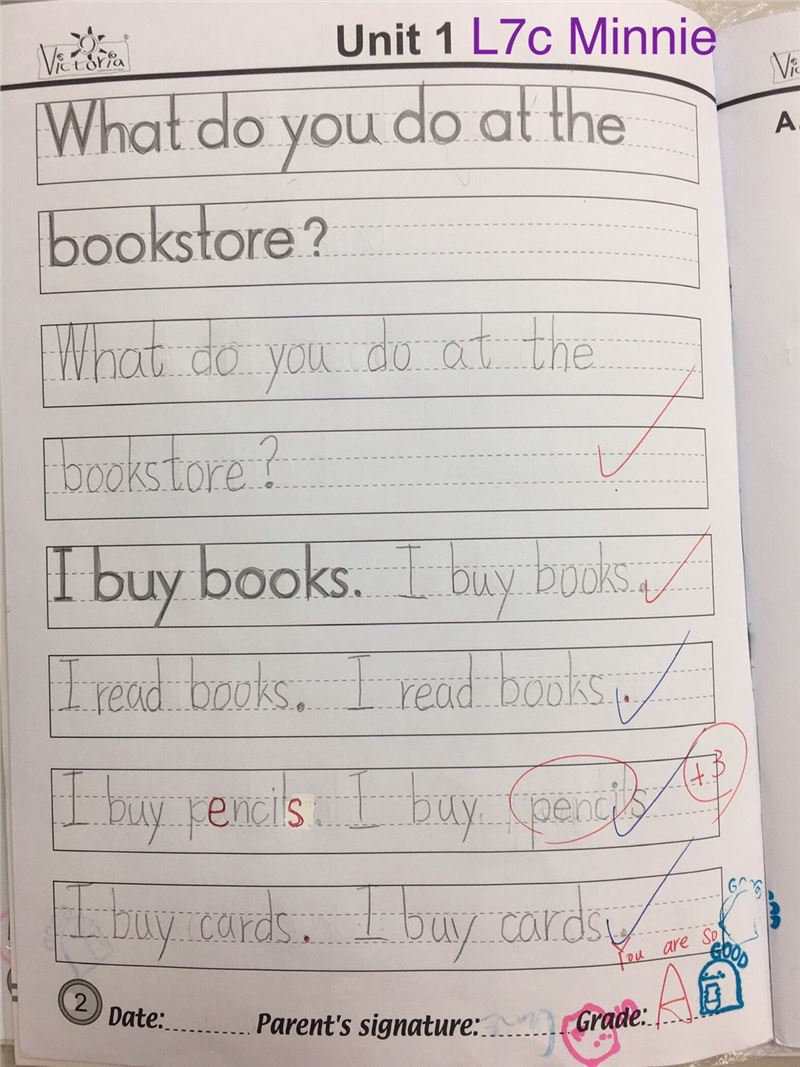 Victoria
Unit 1 L7c Minnie
What do you do at the
bookstore?
What do you do at the
bookstore?
I buy books. I buy books.
I read books. I read books.
I buy pencils. I buy pencils
+3
I buy cards. I buy cards.
You are so
GOOD
A
2 Date: Parent's signature: Grade:
Vi
A.